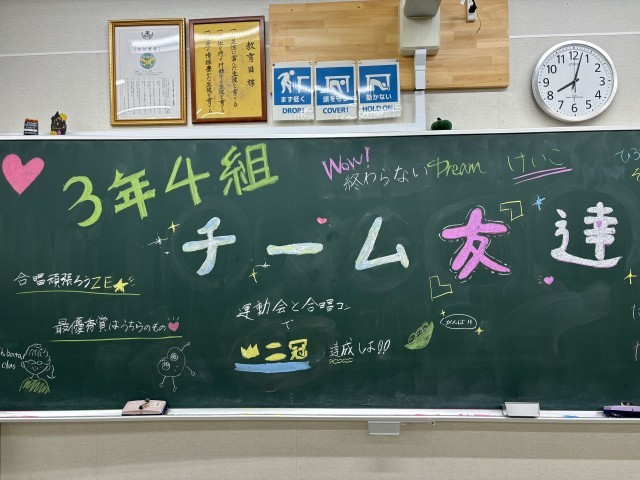 教育目標
まず低く
DROP!
頭を守り
COVER!
動かない
HOLD ON!
3年4組
Wow!
終わらないDream
けいこ
チーム友達
合唱頑張ろうZE
最優秀賞はうちらのもの
運動会と合唱コン
で
二冠
達成しよ!!
がんば!!